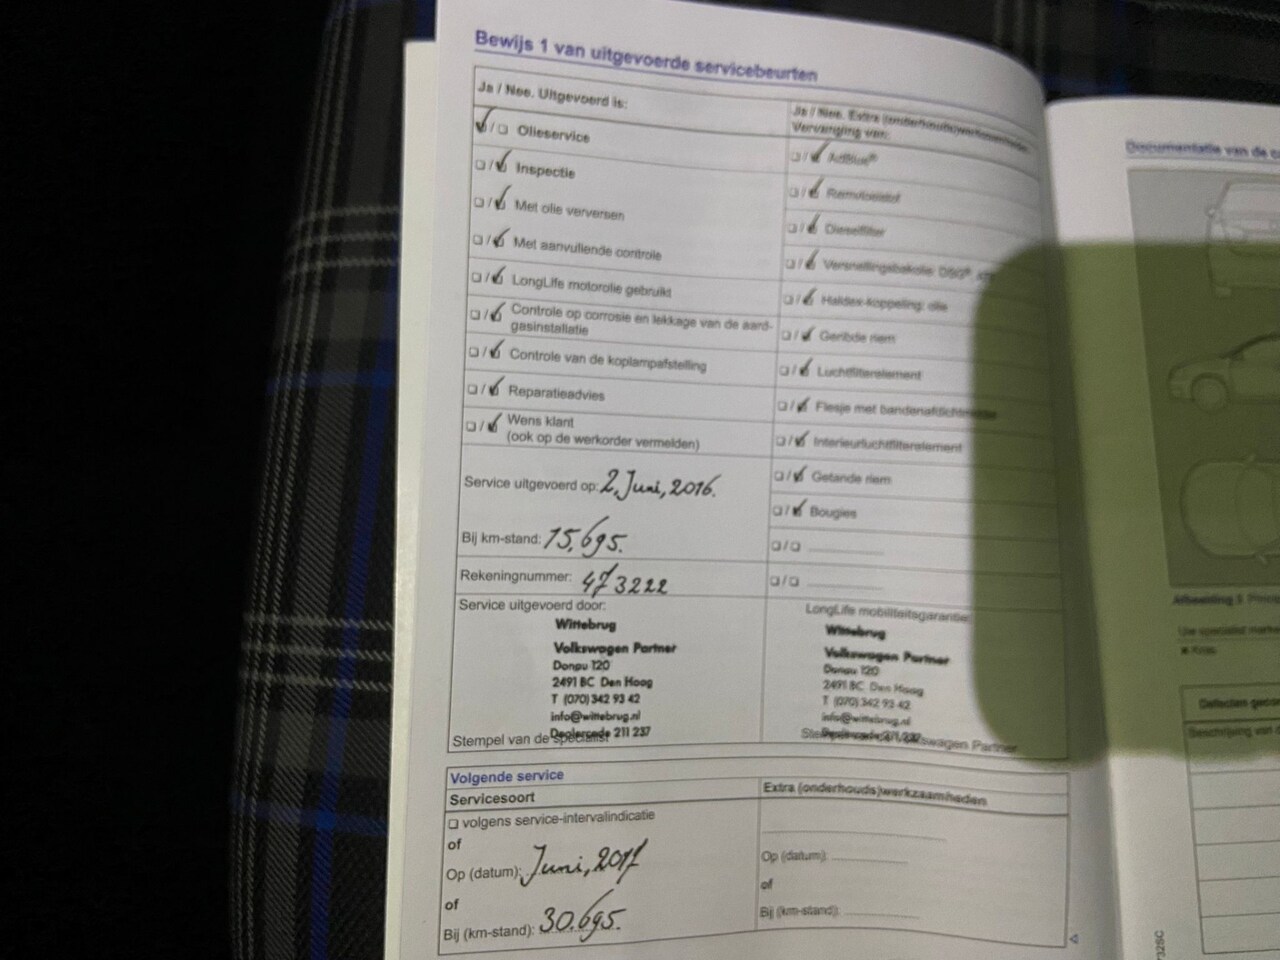 Bewijs 1 van uitgevoerde servicebeurten
Ja / Nee. Uitgevoerd is:
Olieservice
Inspectie
Met olie verversen
Met aanvullende controle
LongLife motorolie gebruikt
Controle op corrosie en lekkage van de aard-
gasinstallatie
Controle van de koplampafstelling
Reparatieadvies
Wens klant
(ook op de werkorder vermelden)
Service uitgevoerd op: 2, Juni, 2016.
Bij km-stand: 15.695.
Rekeningnummer: 473222
Service uitgevoerd door:
Wittebrug
Volkswagen Partner
Donau 120
2491 BC Den Haag
T (070) 342 93 42
info@wittebrug.nl
Dealercode 211 237
Stempel van de specialist
Ja / Nee. Extra (onderhouds)werkzaamheden
Vervanging van:
AdBlue®
Remvloeistof
Dieselfilter
Versnellingsbakolie: DSG®,
Haldex-koppeling: olie
Geribde riem
Luchtfilterelement
Flesje met bandenafdichtmiddel
Interieurluchtfilterelement
Getande riem
Bougies
LongLife mobiliteitsgarantie:
Wittebrug
Volkswagen Partner
Donau 120
2491 BC Den Haag
T (070) 342 93 42
info@wittebrug.nl
Dealercode 211 237
Volkswagen Partner
Volgende service
Servicesoort
volgens service-intervalindicatie
of
Op (datum): Juni, 2017
of
Bij (km-stand): 30.695.
Extra (onderhouds)werkzaamheden
Op (datum):
of
Bij (km-stand):
Documentatie van de
Afbeelding
Uw specialist
Beschrijving van